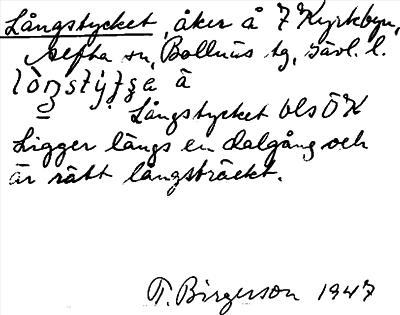 Långstycket, åker å 7 Kyrkbyn,
Sefta sn, Bollnäs tg, Gävl. l.
Långstycket bls ÖK
Ligger längs en dalgång och
är rätt långsträckt.
T. Birgerson 1947